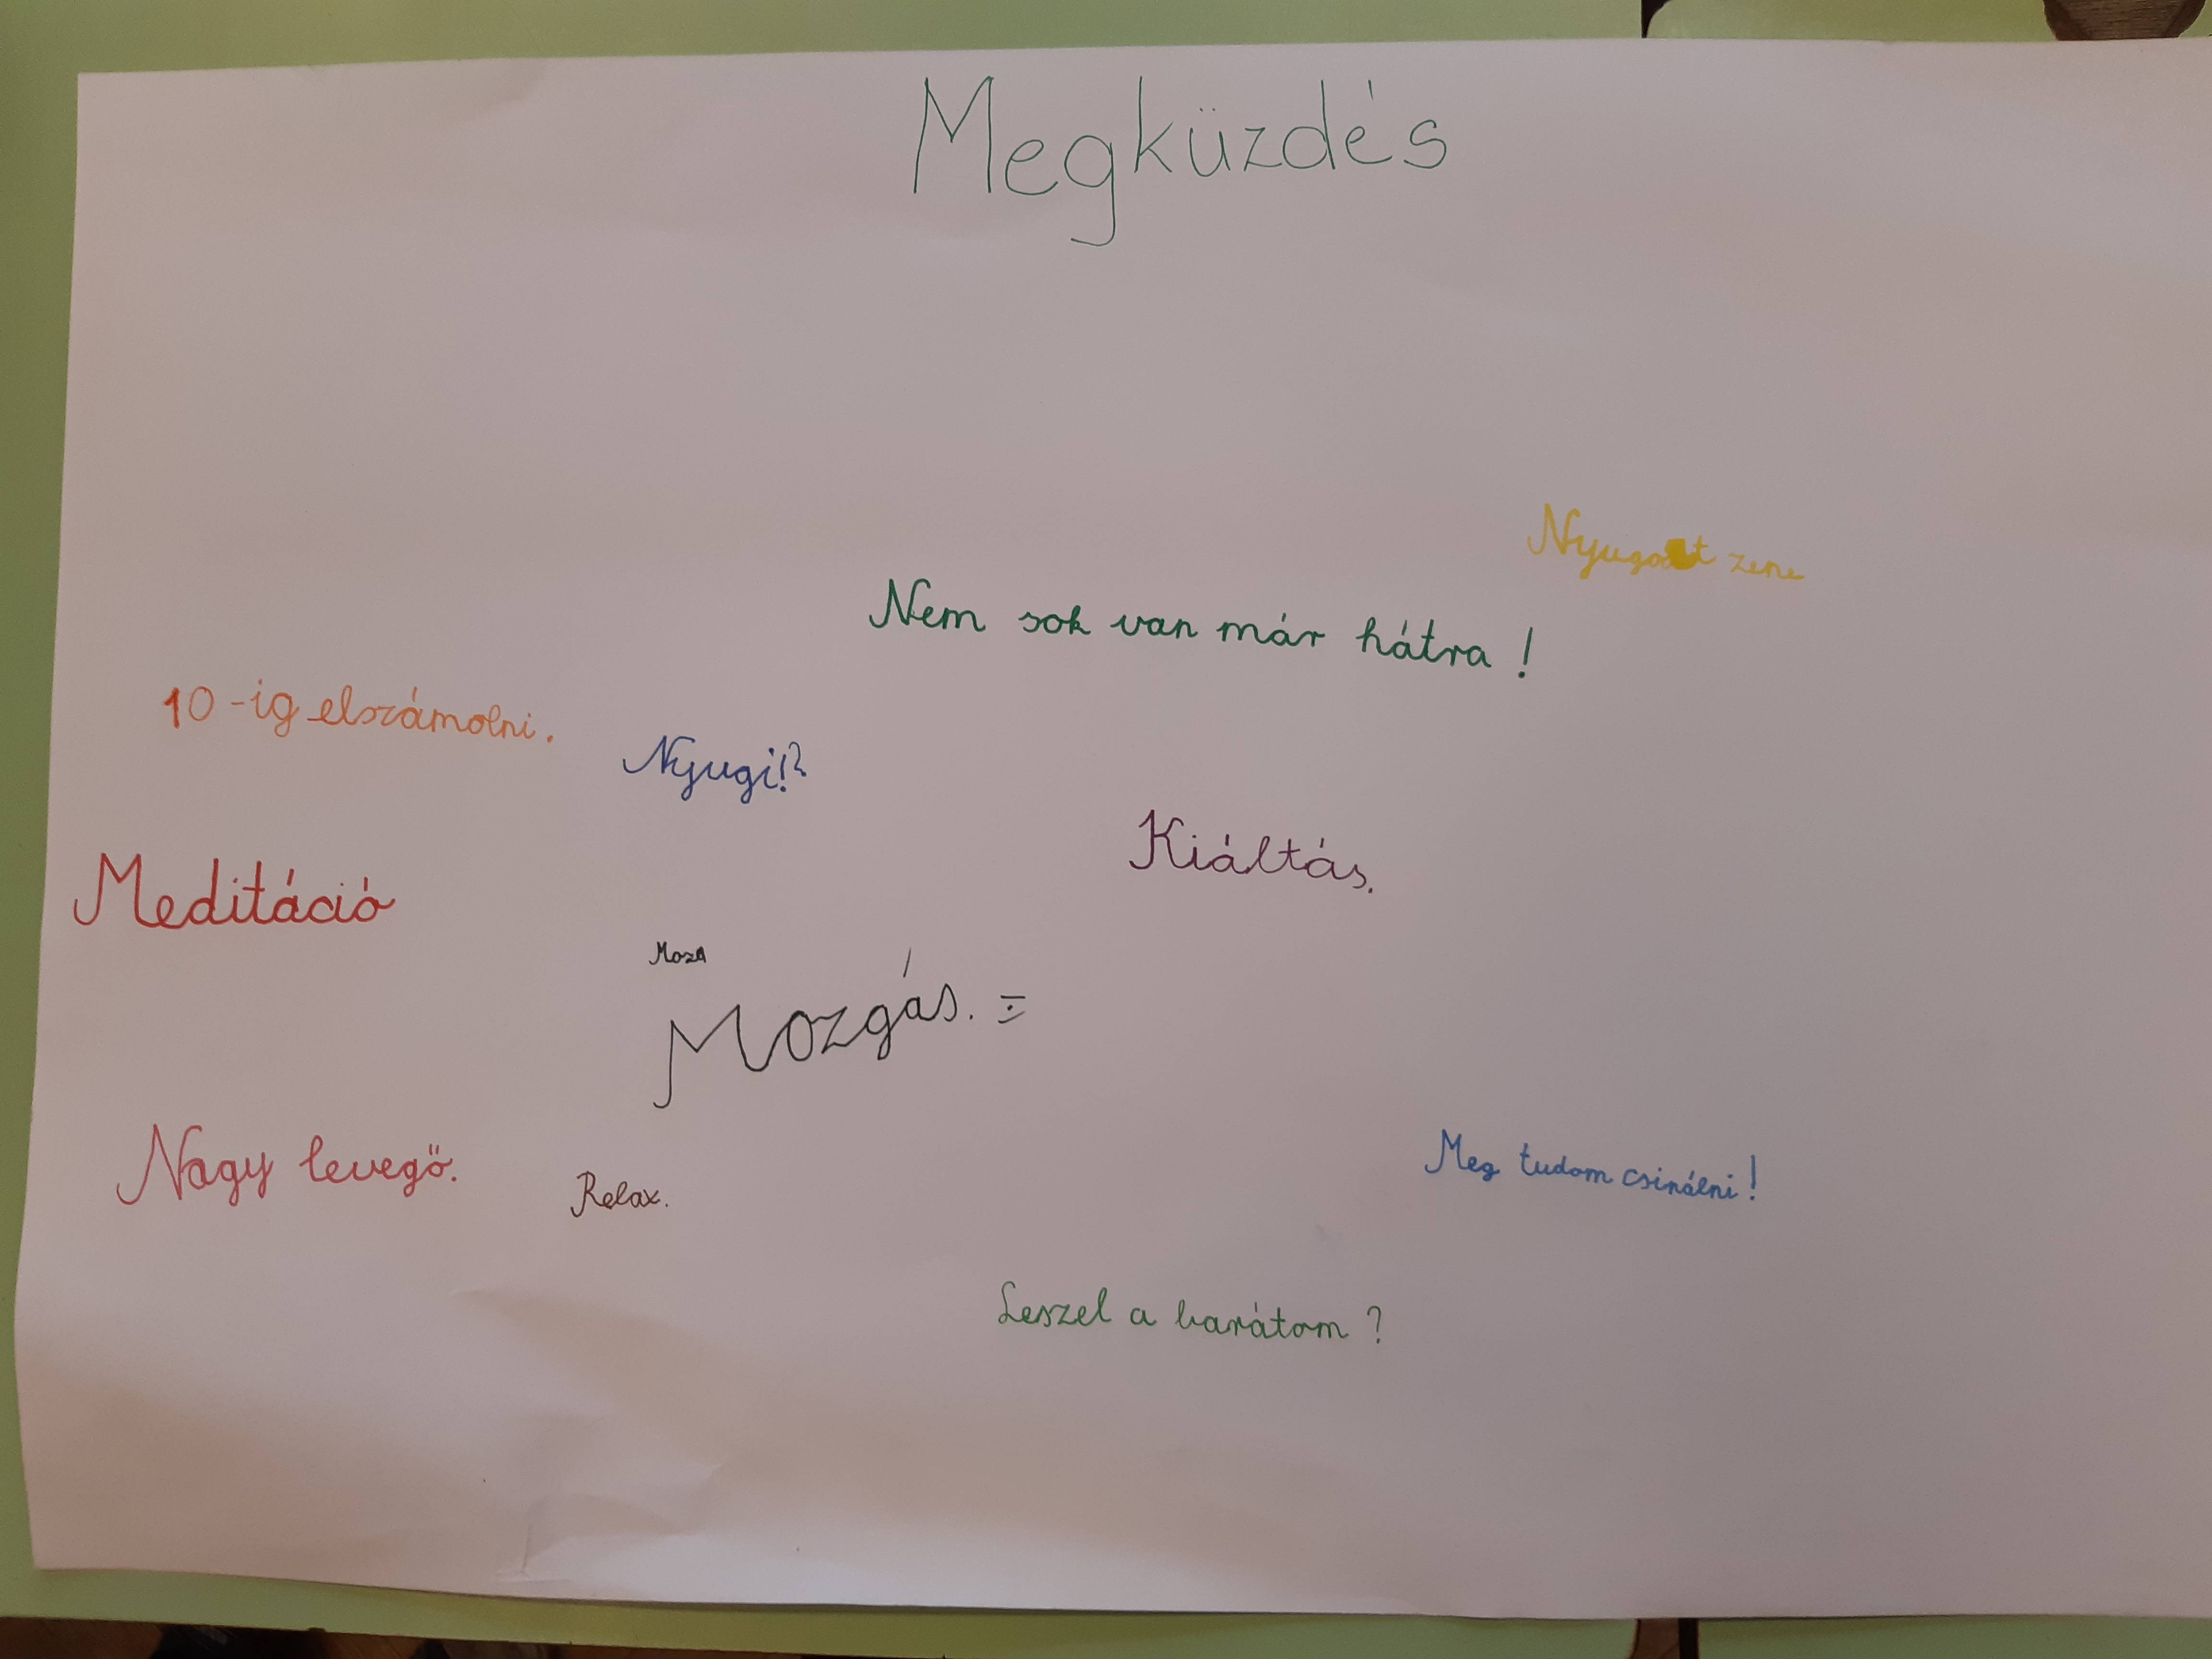 Megküzdés
Nyugodt zene
Nem sok van már hátra!
10-ig elszámolni.
Nyugi!?
Kiáltás.
Meditáció
Moza
Mozgás.
Nagy levegő.
Relax.
Meg tudom csinálni!
Leszel a barátom?